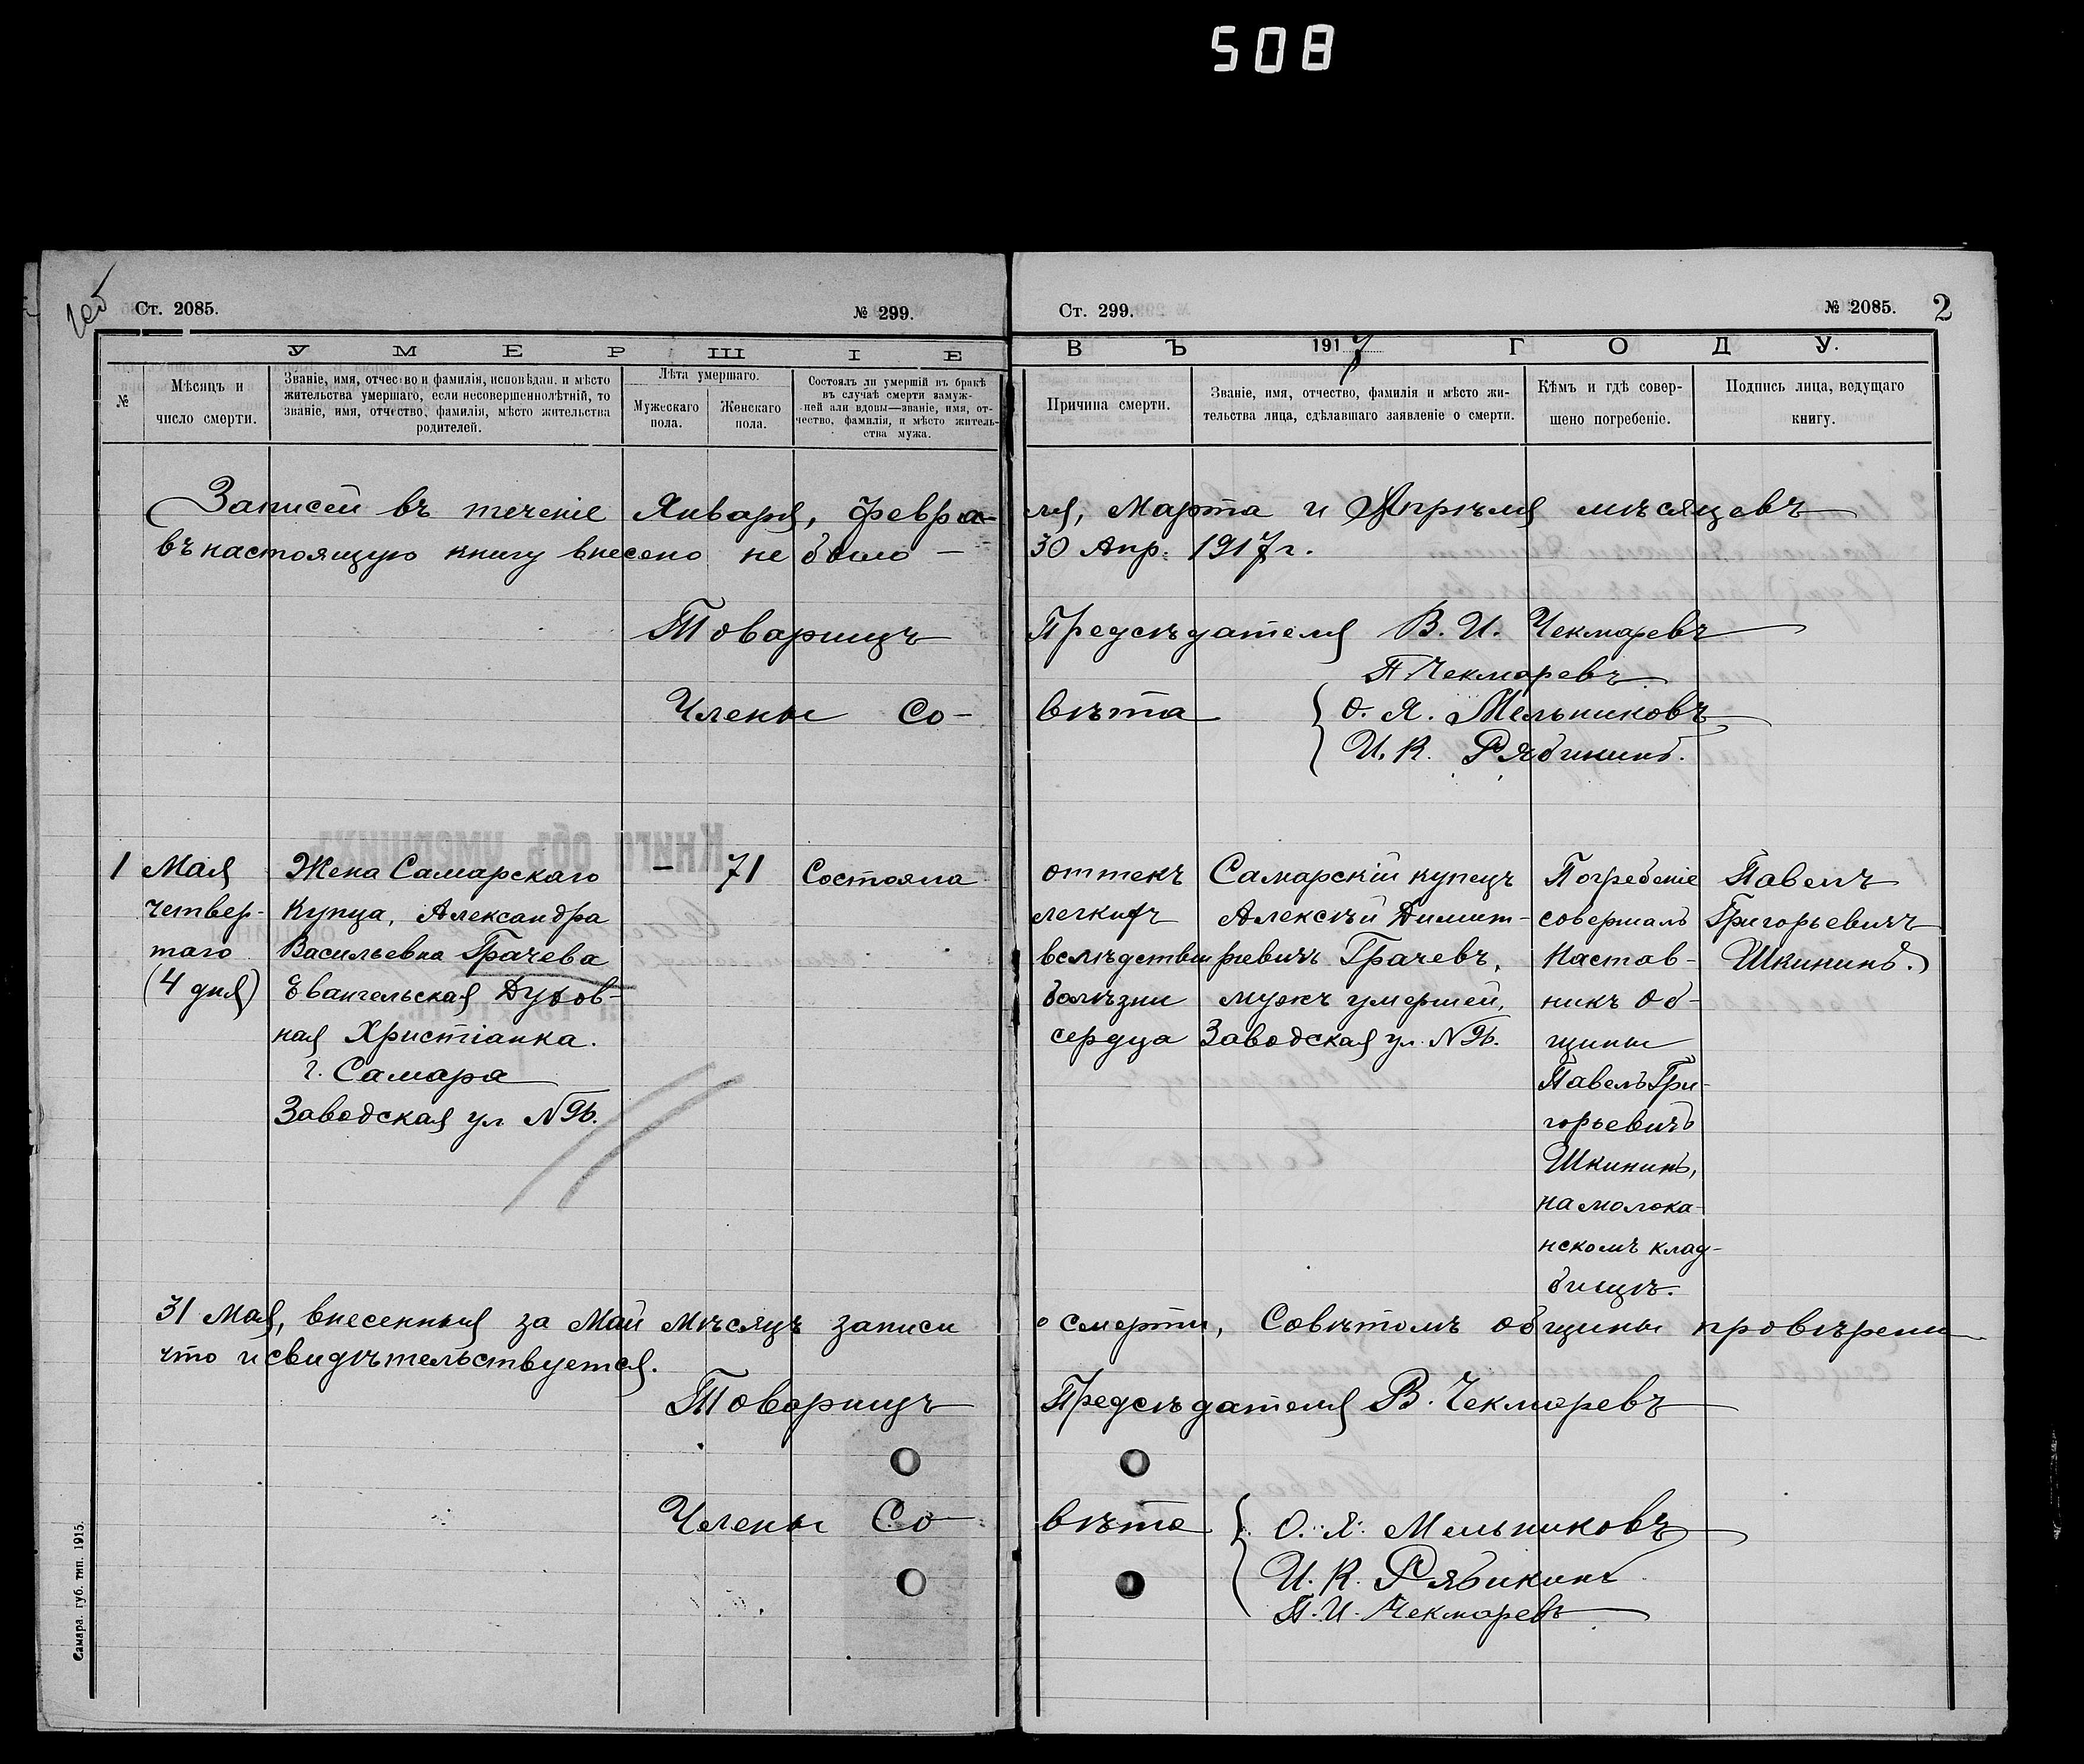 508
Ст. 2085.
№ 299.
Ст. 299.
№ 2085.
2
УМЕРШІЕ
ВЪ 1917 ГОДУ.
№
Мѣсяцъ и
число смерти.
Званіе, имя, отчество и фамилія, исповѣдан. и мѣсто
жительства умершаго, если несовершеннолѣтній, то
званіе, имя, отчество, фамилія, мѣсто жительства
родителей.
Лѣта умершаго.
Мужескаго
пола.
Женскаго
пола.
Состоялъ ли умершій въ бракѣ
въ случаѣ смерти замуж-
ней или вдовы—званіе, имя, от-
чество, фамилія, и мѣсто житель-
ства мужа.
Причина смерти.
Званіе, имя, отчество, фамилія и мѣсто жи-
тельства лица, сдѣлавшаго заявленіе о смерти.
Кѣмъ и гдѣ совер-
шено погребеніе.
Подпись лица, ведущаго
книгу.
Записей въ теченіе Января, Февра-
ля, Марта и Апрѣля мѣсяцевъ
въ настоящую книгу внесено не было —
30 Апр. 1917 г.
Товарищъ Предсѣдателя В. И. Чекмаревъ
П Чекмаревъ
Члены Со-
вѣта О. Я. Мельниковъ
И. К. Рябининъ.
1
Мая
четвер-
таго
(4 дня)
Жена Самарскаго
Купца, Александра
Васильевна Грачева
Евангельская Духов-
ная Христіанка.
г. Самара
Заводская ул № 96.
— 71
Состояла
оттекъ
легкихъ
вслѣдствіи
болѣзни
сердца
Самарскій купецъ
Алексѣй Димит-
ріевичъ Грачевъ,
мужъ умершей,
Заводская ул. № 96.
Погребеніе
совершалъ
Настав-
никъ Об-
щины
Павелъ Гри-
горьевичъ
Шкининъ,
на молока-
нскомъ клад-
бищѣ.
Павелъ
Григорьевичъ
Шкининъ.
31 Мая, внесенныя за Май мѣсяцъ записи
о смерти, Совѣтомъ общины провѣрены
что и свидѣтельствуется.
Товарищъ Предсѣдателя В. Чекмаревъ
Члены Со-
вѣта О. Я. Мельниковъ
И. К. Рябининъ
П. И. Чекмаревъ
Самара. губ. тип. 1915.